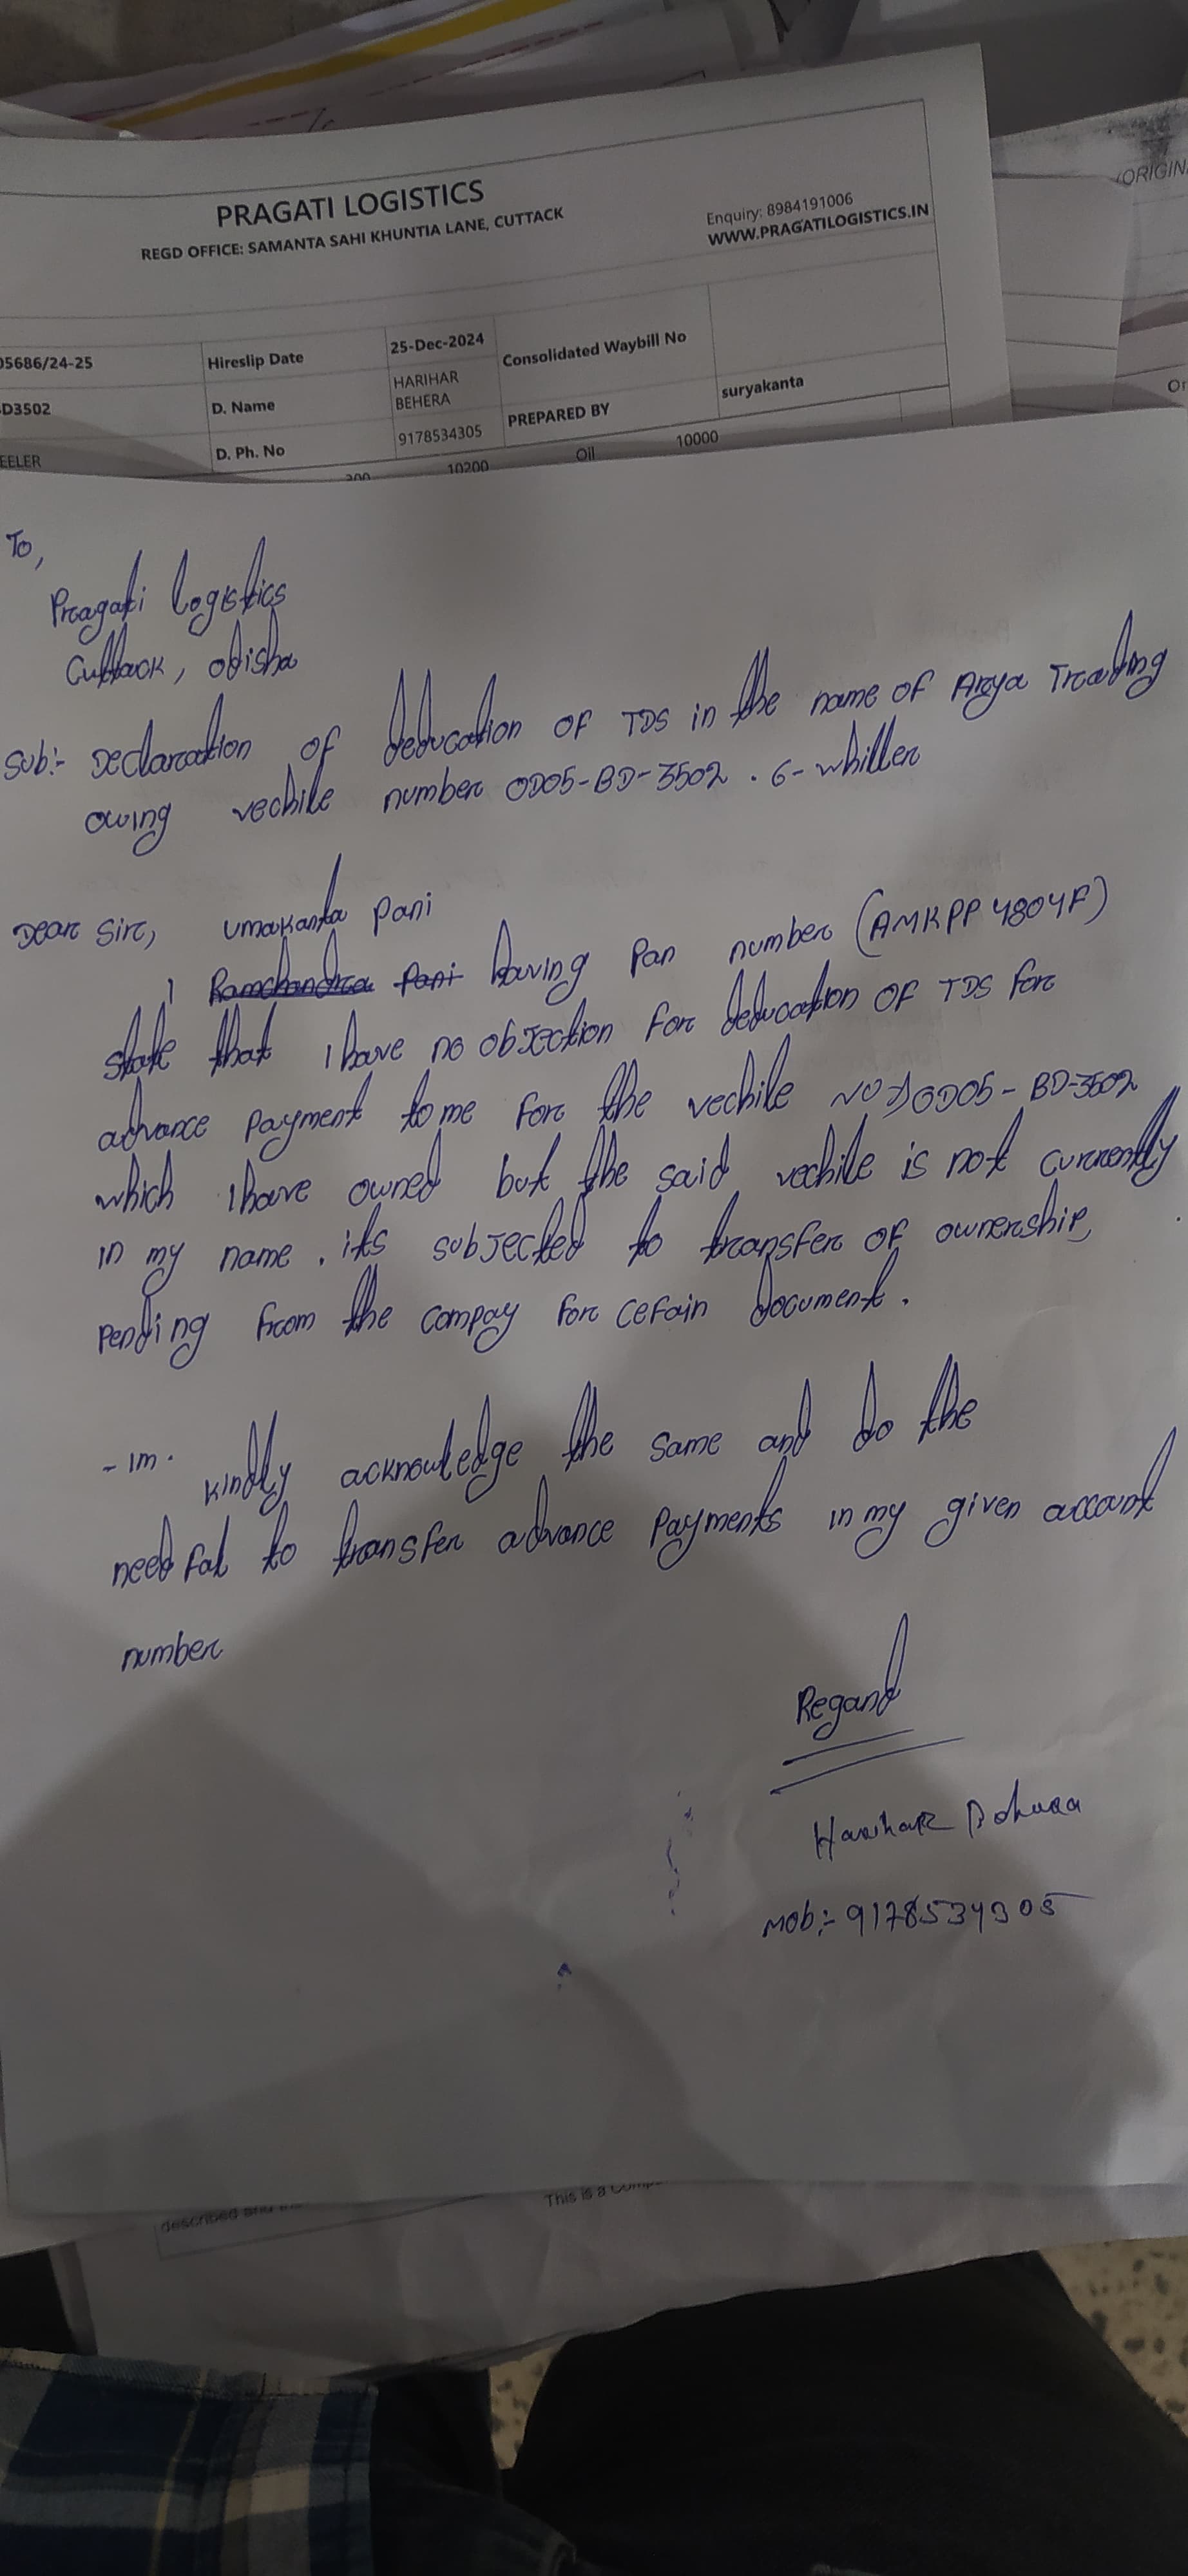 (ORIGIN
PRAGATI LOGISTICS
REGD OFFICE: SAMANTA SAHI KHUNTIA LANE, CUTTACK
Enquiry: 8984191006
WWW.PRAGATILOGISTICS.IN
05686/24-25 Hireslip Date 25-Dec-2024 Consolidated Waybill No
D3502 D. Name HARIHAR BEHERA PREPARED BY suryakanta
EELER D. Ph. No 9178534305
200 10200 Oil 10000
Or
To,
Pragati logistics
Cuttack, odisha
Sub:- Declaration of deducation of TDS in the name of Arya Trading
owing vechile number OD05-BD-3502 . 6-whiller
Dear Sir, umakanta pani
I Ramchandra Pani having Pan number (AMKPP4804F)
state that I have no objection for deducation of TDS for
advance payment to me for the vechile NO OD05-BD-3502
which I have owned but the said vechile is not currently
in my name . its subjected to transfer of ownership,
pending from the compay for cefain document.
- 1m . kindly acknowledge the same and do the
need ful to transfer advance payments in my given account
number
Regard
Harihar Behera
Mob:- 9178534305
described and
This is a Comp